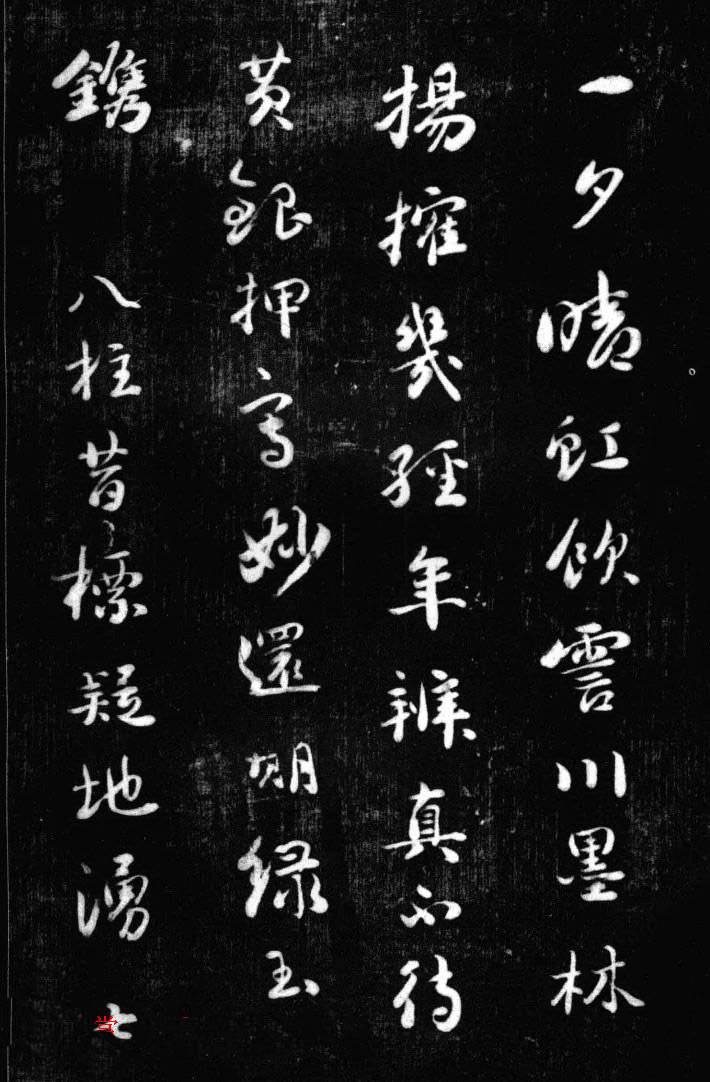 一夕晴虹飲雲川墨林
揚搉幾經年辨真不待
黄銀押寫妙還期緑玉
鐫 八柱昔標疑地湧七